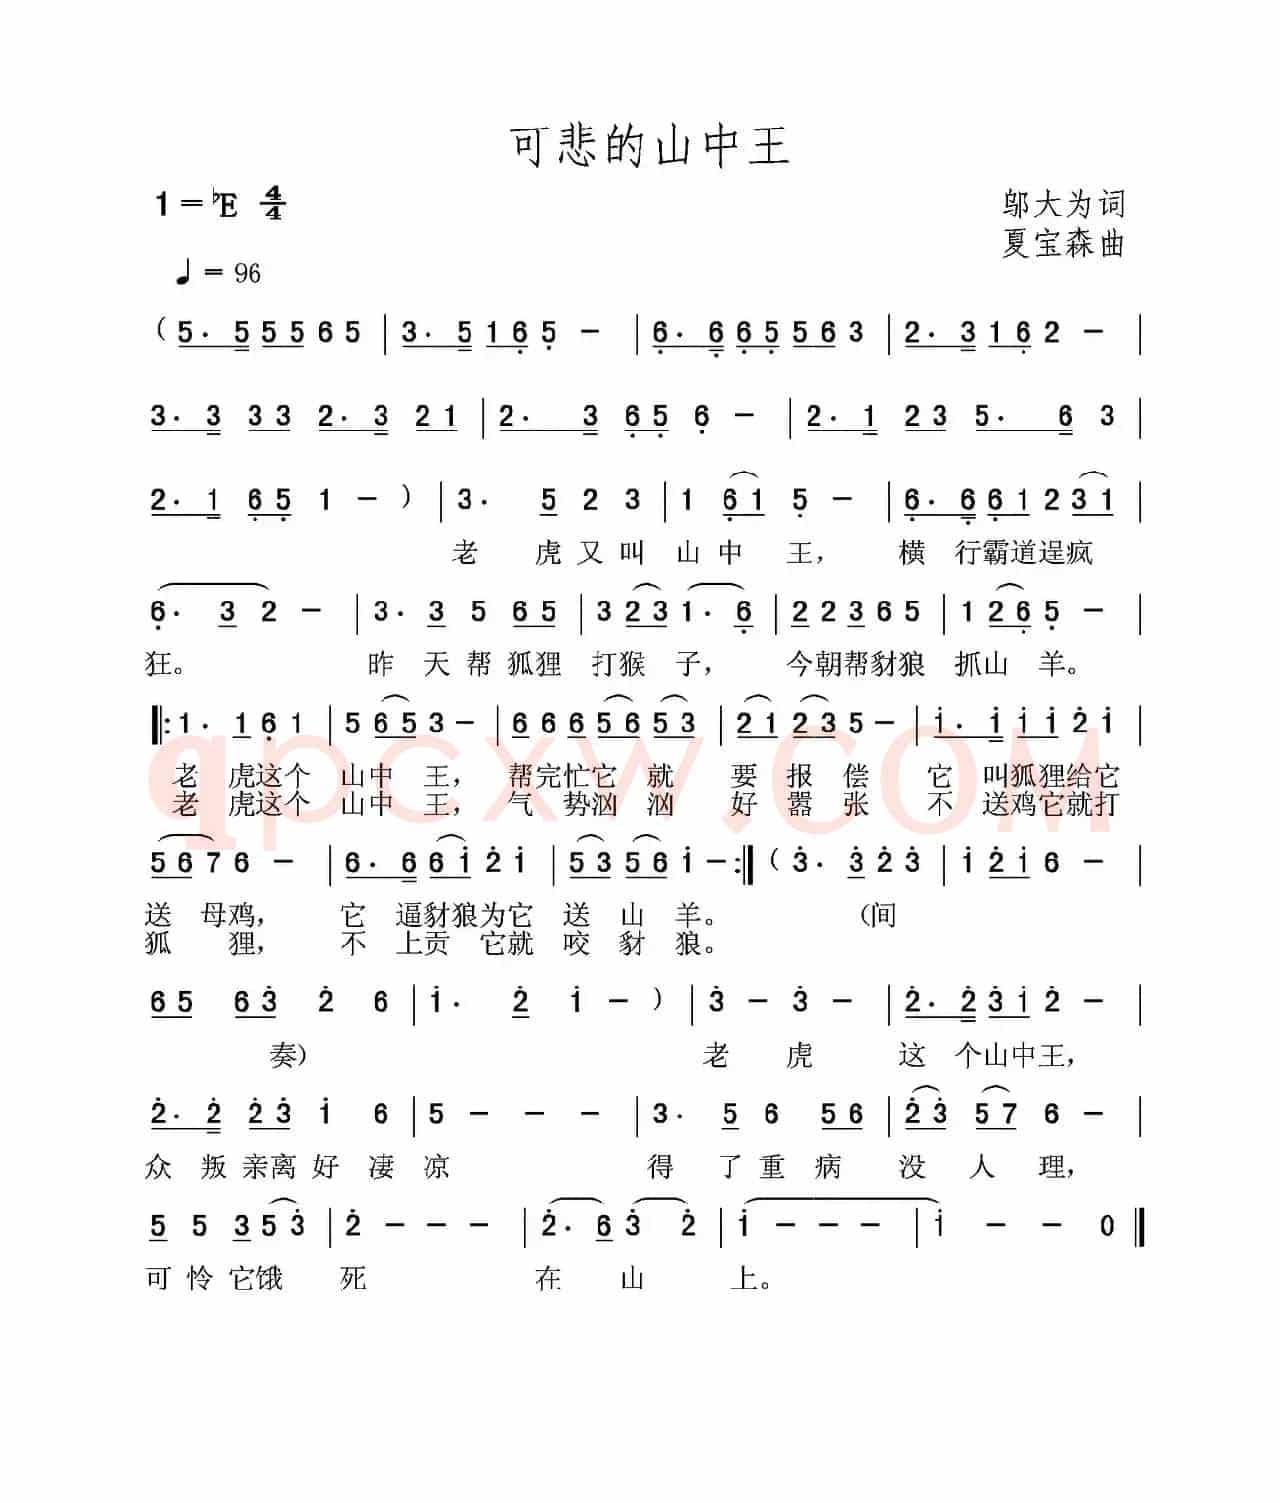 可悲的山中王
1=♭E 4/4
邬大为词
夏宝森曲
♩=96
(5. 5 5 5 6 5 | 3. 5 1 6 5 - | 6. 6 6 5 5 6 3 | 2. 3 1 6 2 - |
3. 3 3 3 2. 3 2 1 | 2. 3 6 5 6 - | 2. 1 2 3 5. 6 3 |
2. 1 6 5 1 -) | 3. 5 2 3 | 1 6 1 5 - | 6. 6 6 1 2 3 1 |
老 虎 又 叫 山 中 王, 横 行霸道逞疯
6. 3 2 - | 3. 3 5 6 5 | 3 2 3 1. 6 | 2 2 3 6 5 | 1 2 6 5 - |
狂。 昨 天 帮 狐狸 打猴 子, 今朝帮豺狼 抓山 羊。
‖: 1. 1 6 1 | 5 6 5 3 - | 6 6 6 5 6 5 3 | 2 1 2 3 5 - | i. i i i 2̇ i |
老 虎这个 山中 王, 帮完忙它 就 要 报 偿 它 叫狐狸给它
老 虎这个 山中 王, 气 势汹 汹 好 嚣 张 不 送鸡它就打
5 6 7 6 - | 6. 6 6 i 2̇ i | 5 3 5 6 i - :‖ (3̇. 3̇ 2̇ 3̇ | i 2̇ i 6 - |
送 母鸡, 它 逼豺狼为它 送 山 羊。 (间
狐 狸, 不 上贡 它就 咬 豺 狼。
6 5 6 3̇ 2̇ 6 | i. 2̇ i -) | 3̇ - 3̇ - | 2̇. 2̇ 3̇ i 2̇ - |
奏) 老 虎 这 个山中王,
2̇. 2̇ 2̇ 3̇ i 6 | 5 - - - | 3. 5 6 5 6 | 2̇ 3̇ 5 7 6 - |
众 叛 亲离 好 凄 凉 得 了 重 病 没 人 理,
5 5 3 5 3̇ | 2̇ - - - | 2̇. 6 3̇ 2̇ | i - - - | i - - 0 ‖
可 怜 它饿 死 在 山 上。
qpcxw.COM